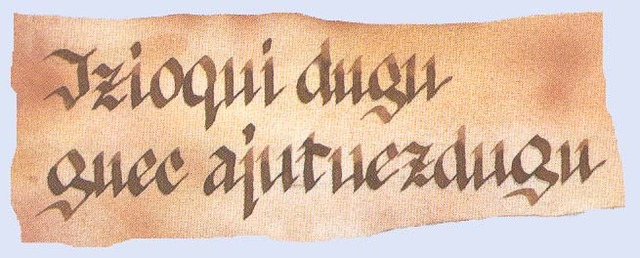 Jzioqui dugu
guec ajutuezdugu